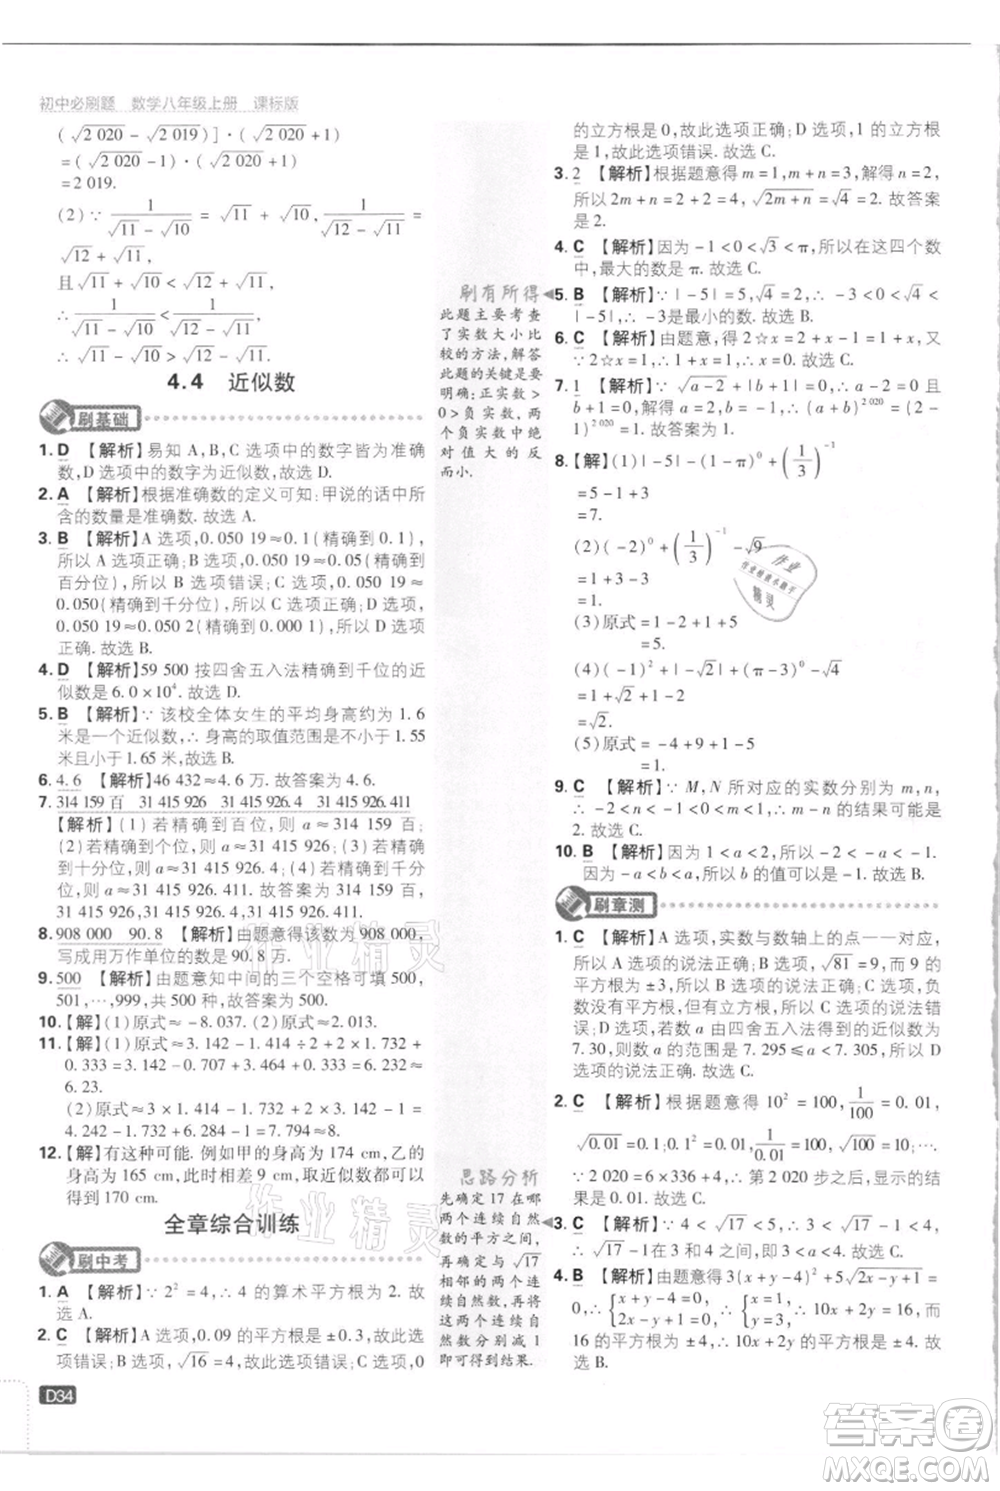 初中必刷题 数学八年级上册 课标版
(√2 020 - √2 019)]·(√2 020+1)
=(√2 020-1)·(√2 020+1)
=2 019.
(2)∵ 1/(√11-√10) = √11+√10, 1/(√12-√11) =
√12+√11,
且 √11+√10<√12+√11,
∴ 1/(√11-√10) < 1/(√12-√11),
∴ √11-√10>√12-√11.
4.4 近似数
刷基础
1. D 【解析】易知 A,B,C 选项中的数字皆为准确
数,D 选项中的数字为近似数,故选 D.
2. A 【解析】根据准确数的定义可知:甲说的话中所
含的数量是准确数,故选 A.
3. B 【解析】A 选项,0.050 19≈0.1(精确到 0.1),
所以 A 选项正确;B 选项,0.050 19≈0.05(精确到
百分位),所以 B 选项错误;C 选项,
0.050 19≈0.050(精确到千分位),所以 C 选项正确;D 选项,
0.050 19≈0.050 2(精确到 0.000 1),所以 D 选项
正确.故选 B.
4. D 【解析】59 500 按四舍五入法精确到千位的近
似数是 6.0×10⁴.故选 D.
5. B 【解析】∵ 该校全体女生的平均身高约为 1.6
米是一个近似数,∴ 身高的取值范围大于 1.55 米
且小于 1.65 米.故选 B.
6. 4.6 【解析】46 432≈4.6 万.故答案为 4.6.
7. 314 159 百 31 415 926 31 415 926.4 31 415 926.411
【解析】(1)若精确到百位,则 a≈314 159 百;
(2)若精确到个位,则 a≈31 415 926;(3)若精确
到十分位,则 a≈31 415 926.4;(4)若精确到千分
位,则 a≈31 415 926.411.故答案为 314 159 百,
31 415 926,31 415 926.4,31 415 926.411.
8. 908 000 90.8 【解析】由题意得该数为 908 000,
写成用万作单位的数是 90.8 万.
9. 500 【解析】由题意知中间的三个空格可填 500,
501,…,999,共 500 个.故答案为 500.
10.【解】(1)原式≈-8.037.(2)原式≈1.342.
11.【解】(1)原式≈18×1.414÷2+1.732×1.732+
0.6×1.414×0.6×1.414≈12.73+3.00+0.72≈
6.23.
(2)原式≈3×1.414-1.732+2×1.732-1≈
4.24-1.73+3.46-1≈4.97.
12.【解】有这种可能.例如甲的身高为 174 cm,乙的
身高为 165 cm,此时相差 9 cm,取近似数时,都可以
得到 170 cm.
全章综合训练
刷中考
1. A 【解析】∵ 2²=4,∴ 4 的算术平方根为 2.故
选 A.
2. C 【解析】A 选项,0.09 的平方根是±0.3,故此选
项错误;B 选项,√16=4,故此选项错误;C 选项,0
D34
刷有所得
此题主要考查
了实数大小比
较的方法,解答
此题的关键是要
明确:正实数>
0>负实数,两
个负实数中绝
对值大的反
而小.
思路分析
先确定 17 在哪
两个连续自然
数之间,再得√17
相邻的两个连
续自然数,将两
自然数分别减 1
即可得到结果.
的立方根是 0,故此选项正确;D 选项,1 的立方根
是 1,故此选项错误.故选 C.
3. 2 【解析】根据题意得 m=1,m+n=3,解得 n=2,
所以 2m+n=2+2=4,√(2m+n)=√4=2,故答案
是 2.
4. C 【解析】因为-1<0<√3<π,所以在这四个数
中,最大的数是 π.故选 C.
5. B 【解析】∵|-5|=5,√4=2,∴ -3<0<√4<
|-5|,∴ -3 是最小的数.故选 B.
6. C 【解析】由题意,得 2☆x=2+2x-2=2x.又
∵ 2☆x=2,∴ 2x=2,∴ x=1.故选 C.
7. 1 【解析】∵ √(a-2)+|b+1|=0,∴ a-2=0 且
b+1=0,解得 a=2,b=-1,∴ (a+b)^2 020=(2-
1)^2 020=1.故答案为 1.
8.【解】(1)|-5|-(π-1)⁰+(1/3)⁻¹
=5-1+3
=7.
(2)(-2)⁰+(1/3)⁻¹-√9
=1+3-3
=1.
(3)原式=1-2+4+2
=5.
(4)(-1)²+|-√2|+(π-3)⁰-√4
=1+√2+1-2
=√2.
(5)原式=4-9+1-5+
=1.
9. C 【解析】∵ M,N 所对应的实数分别为 m,n,
∴ -2<n<-1<0<m<1,∴ m-n 的结果可能是
2.故选 C.
10. B 【解析】因为 1<a<2,所以-2<-a<-1.
因为-a<b<a,所以 b 的值可以是-1.故选 B.
刷章测
1. C 【解析】A 选项,实数与数轴上的点一一对应,
所以 A 选项的说法正确;B 选项,√81=9,而 9 的
平方根为±3,所以 B 选项的说法正确;C 选项,负
数没有平方根,但有立方根,所以 C 选项的说法错
误;D 选项,若数 a 由四舍五入法得到的近似数为
7.30,则 a 的范围是 7.295≤a<7.305,所以 D
选项的说法正确.故选 C.
2. C 【解析】根据题意得 10²=100,1/100=0.01,
√0.01=0.1;0.1²=0.01,1/0.01=100,√100=10,…
∵ 2 020=6×336+4,∴ 第 2 020 步之后,显示的结
果为 0.01.故选 C.
3. C 【解析】∵ 4<√17<5,∴ 3<√17-1<4,
∴ 这两个连续自然数是 3 和 4.故选 C.
4. B 【解析】由题意得 3(x+y-4)²+5√(2x-y+1)=
0,∴ { x+y-4=0, 2x-y+1=0, ∴ { x=1, y=3, ∴ 10x+2y=16,而
16 的平方根为±4,∴ 10x+2y 的平方根为±4.故
选 B.
作业精灵
作业精灵
作业
精灵
答案圈
MXQE.COM